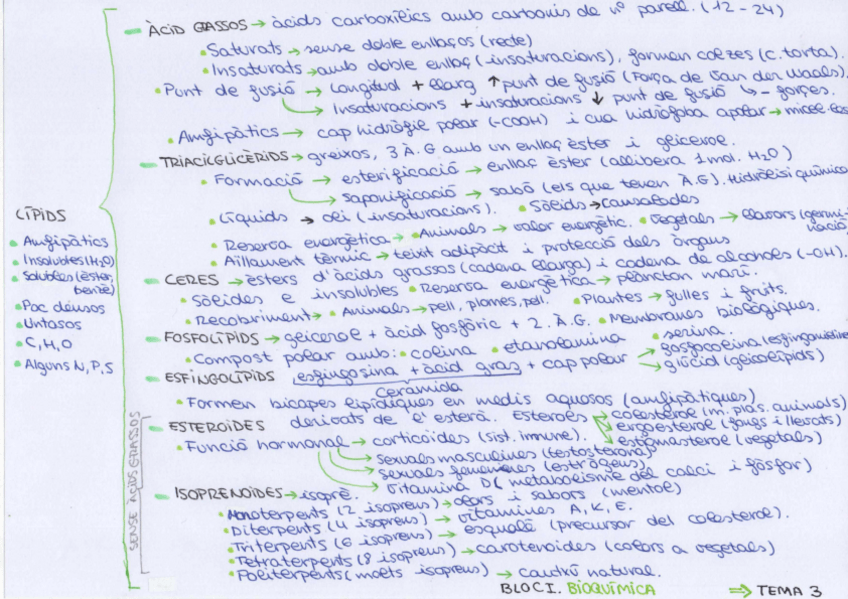 LÍPIDS
Amfipàtics
Insolubles (H₂O)
Solubles (èster, benzè)
Poc densos
Untosos
C, H, O
Alguns N, P, S
ÀCID GRASSOS → àcids carboxílics amb carbonis de nº parell. (12-24)
Saturats → sense doble enllaços (recte)
Insaturats → amb doble enllaç (-insaturacions), formen colzes (c. torta).
Punt de fusió → Longitud + llarg ↑ punt de fusió (Força de Van der Waals).
Insaturacions + insaturacions ↓ punt de fusió ↳ - forces.
Amfipàtics → cap hidròfil polar (-COOH) i cua hidròfoba apolar →
TRIACILGLICÈRIDS → greixos, 3 À.G amb un enllaç èster i glicerol.
Formació → esterificació → enllaç èster (allibera 1 mol. H₂O)
saponificació → sabó (els que tenen À.G). Hidròlisi química
Líquids → oli (-insaturacions). Sòlids →
Reserva energètica → Animals → valor energètic. Vegetals → llavors (germinació)
Aïllament tèrmic → teixit adipòcit i protecció dels òrgans
CERES → èsters d'àcids grassos (cadena llarga) i cadena de alcohols (-OH).
Sòlides e insolubles Reserva energètica → plàncton marí.
Recobriment → Animals → pell, plomes, pèl. Plantes → fulles i fruits.
FOSFOLÍPIDS → glicerol + àcid fosfòric + 2. À.G. Membranes biològiques.
Compost polar amb: colina etanolamina serina.
ESFINGOLÍPIDS esfingosina + àcid gras + cap polar → fosfocolina
→ glúcid (glicolípids)
Ceramida
Formen bicapes lipídiques en medis aquosos (amfipàtiques)
SENSE ÀCIDS GRASSOS
ESTEROIDES derivats de l'esterà. Esterols → colesterol (m. plas. animals)
→ ergosterol (fongs i llevats)
Funció hormonal → corticoides (sist. immune). → estigmasterol (vegetals)
sexuals masculines (testosterona)
sexuals femenines (estrògens)
vitamina D (metabolisme del calci i fòsfor)
ISOPRENOIDES → isoprè.
Monoterpens (2 isoprens) → olors i sabors (mentol)
Diterpents (4 isoprens) → vitamines A, K, E.
Triterpents (6 isoprens) → esqualè (precursor del colesterol).
Tetraterpents (8 isoprens) → carotenoides (colors a vegetals)
Politerpents (molts isoprens) → cautxú natural.
BLOC I. BIOQUÍMICA ⇒ TEMA 3